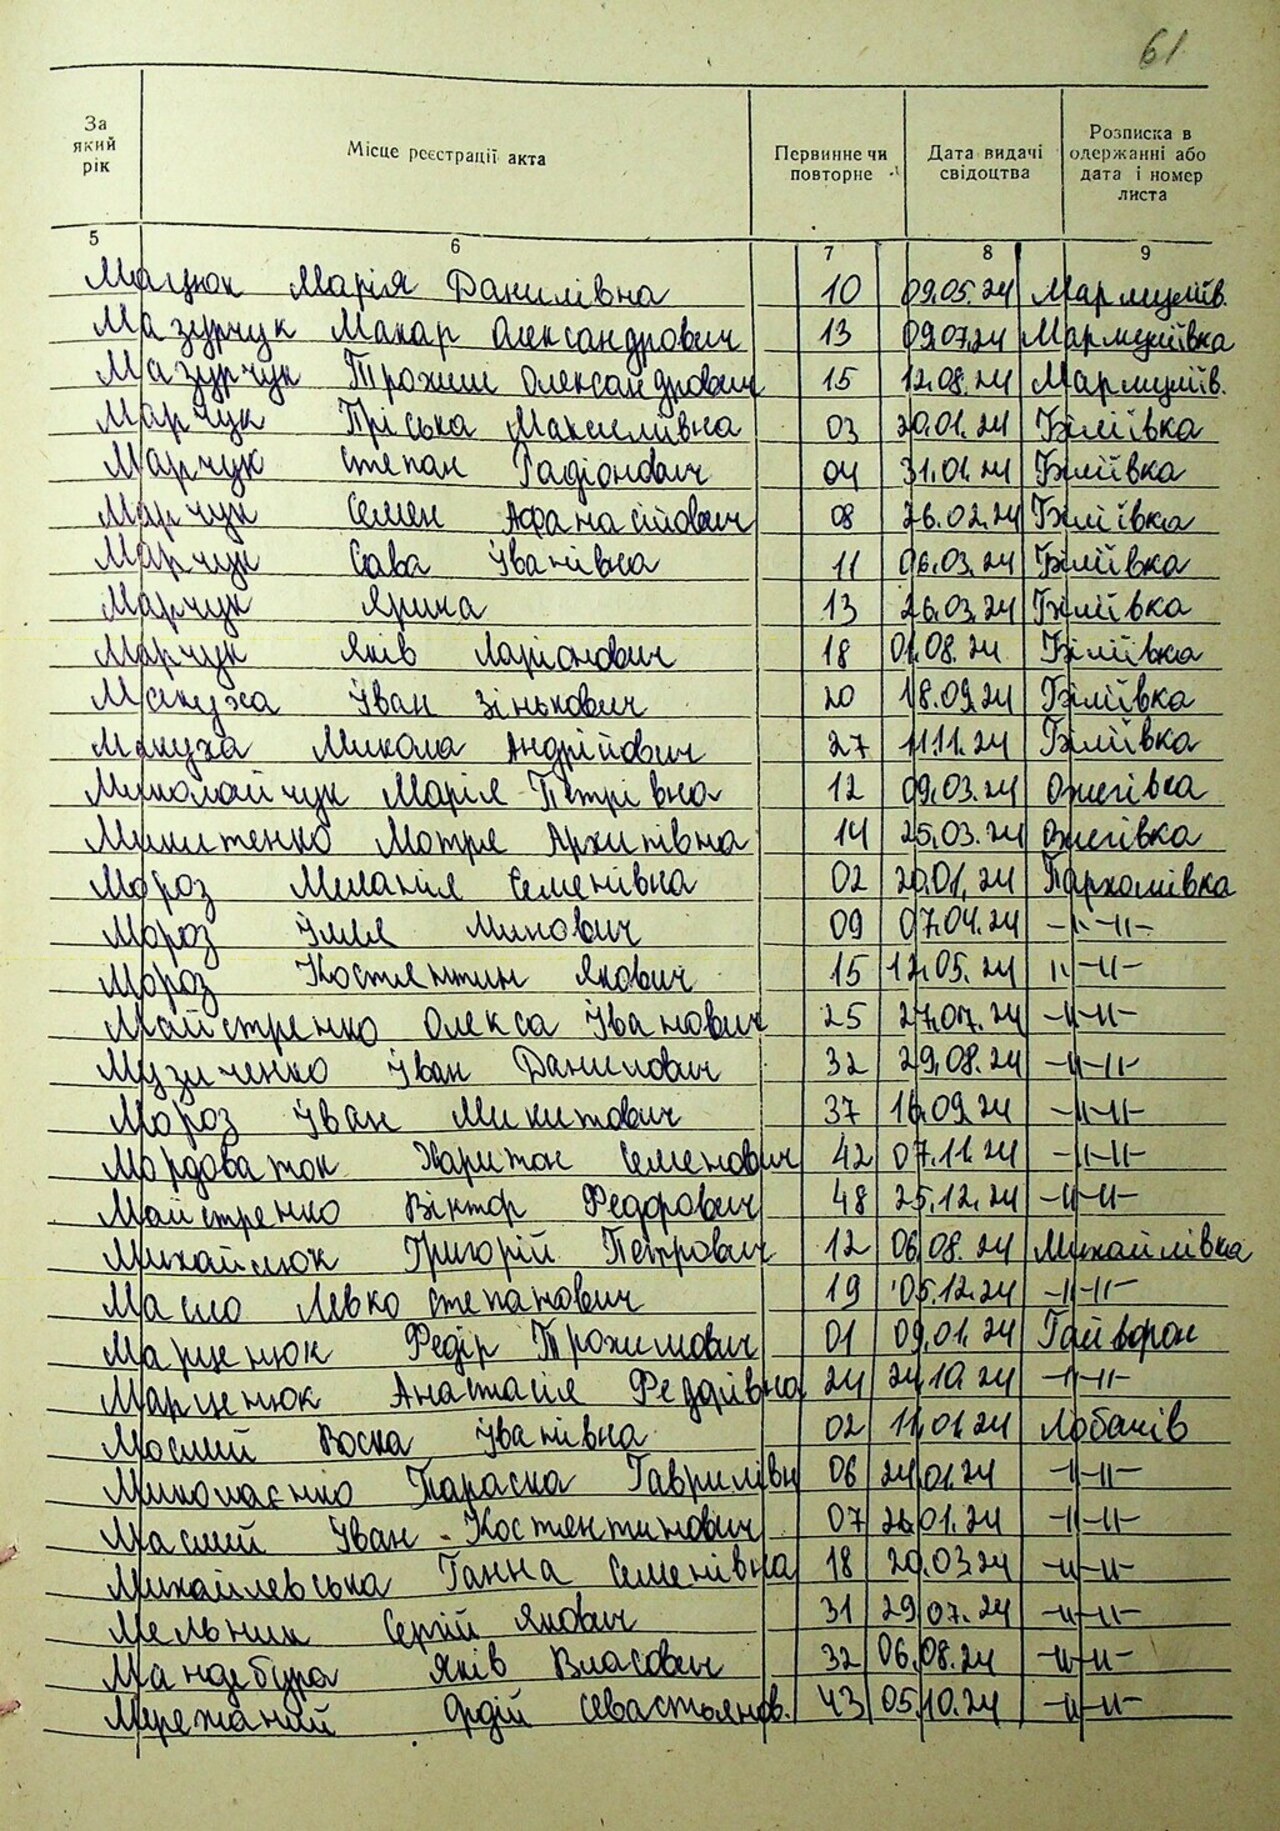 61
За який рік
Місце реєстрації акта
Первинне чи повторне
Дата видачі свідоцтва
Розписка в одержанні або дата і номер листа
5 6 7 8 9
Мацюк Марія Данилівна 10 09.05.24
Мазурчук Макар Олександрович 13 09.07.24
Мазурчук Трохим Олександрович 15 12.08.24
Марчук Пріська Максимівна 03 20.01.24 Біліївка
Марчук Степан Радіонович 04 31.01.24 Біліївка
Марчук Семен Афанасійович 08 26.02.24 Біліївка
Марчук Сава Іванівна 11 06.03.24 Біліївка
Марчук Ярина 13 26.03.24 Біліївка
Марчук Яків Ларіонович 18 01.08.24 Біліївка
Макуха Іван Зінькович 20 18.09.24 Біліївка
Макуха Микола Андрійович 27 11.11.24 Біліївка
Миколайчук Марія Петрівна 12 09.03.24 Ожегівка
Микитенко Мотря Архипівна 14 25.03.24 Ожегівка
Мороз Меланія Семенівна 02 20.01.24 Пархомівка
Мороз Ілля Минович 09 07.04.24 -"-"-
Мороз Костянтин Якович 15 12.05.24 "-"-
Майстренко Олекса Іванович 25 27.07.24 -"-"-
Музиченко Іван Данилович 32 29.08.24 -"-"-
Мороз Іван Микитович 37 16.09.24 -"-"-
Мордоваток Харитон Семенович 42 07.11.24 -"-"-
Майстренко Віктор Федорович 48 25.12.24 -"-"-
Михайлюк Григорій Петрович 12 06.08.24 Михайлівка
Масло Левко Степанович 19 05.12.24 -"-"-
Марценюк Федір Трохимович 01 09.01.24 Гайворон
Марценюк Анастасія Федорівна 24 24.10.24 -"-"-
Воска Іванівна 02 11.01.24 Лобачів
Миколаєнко Параска Гаврилівн 06 24.01.24 -"-"-
Маслий Іван Костянтинович 07 26.01.24 -"-"-
Михайлевська Ганна Семенівна 18 20.03.24 -"-"-
Мельник Сергій Якович 31 29.07.24 -"-"-
Мандебура Яків Власович 32 06.08.24 -"-"-
Мережаний Севастьянов. 43 05.10.24 -"-"-